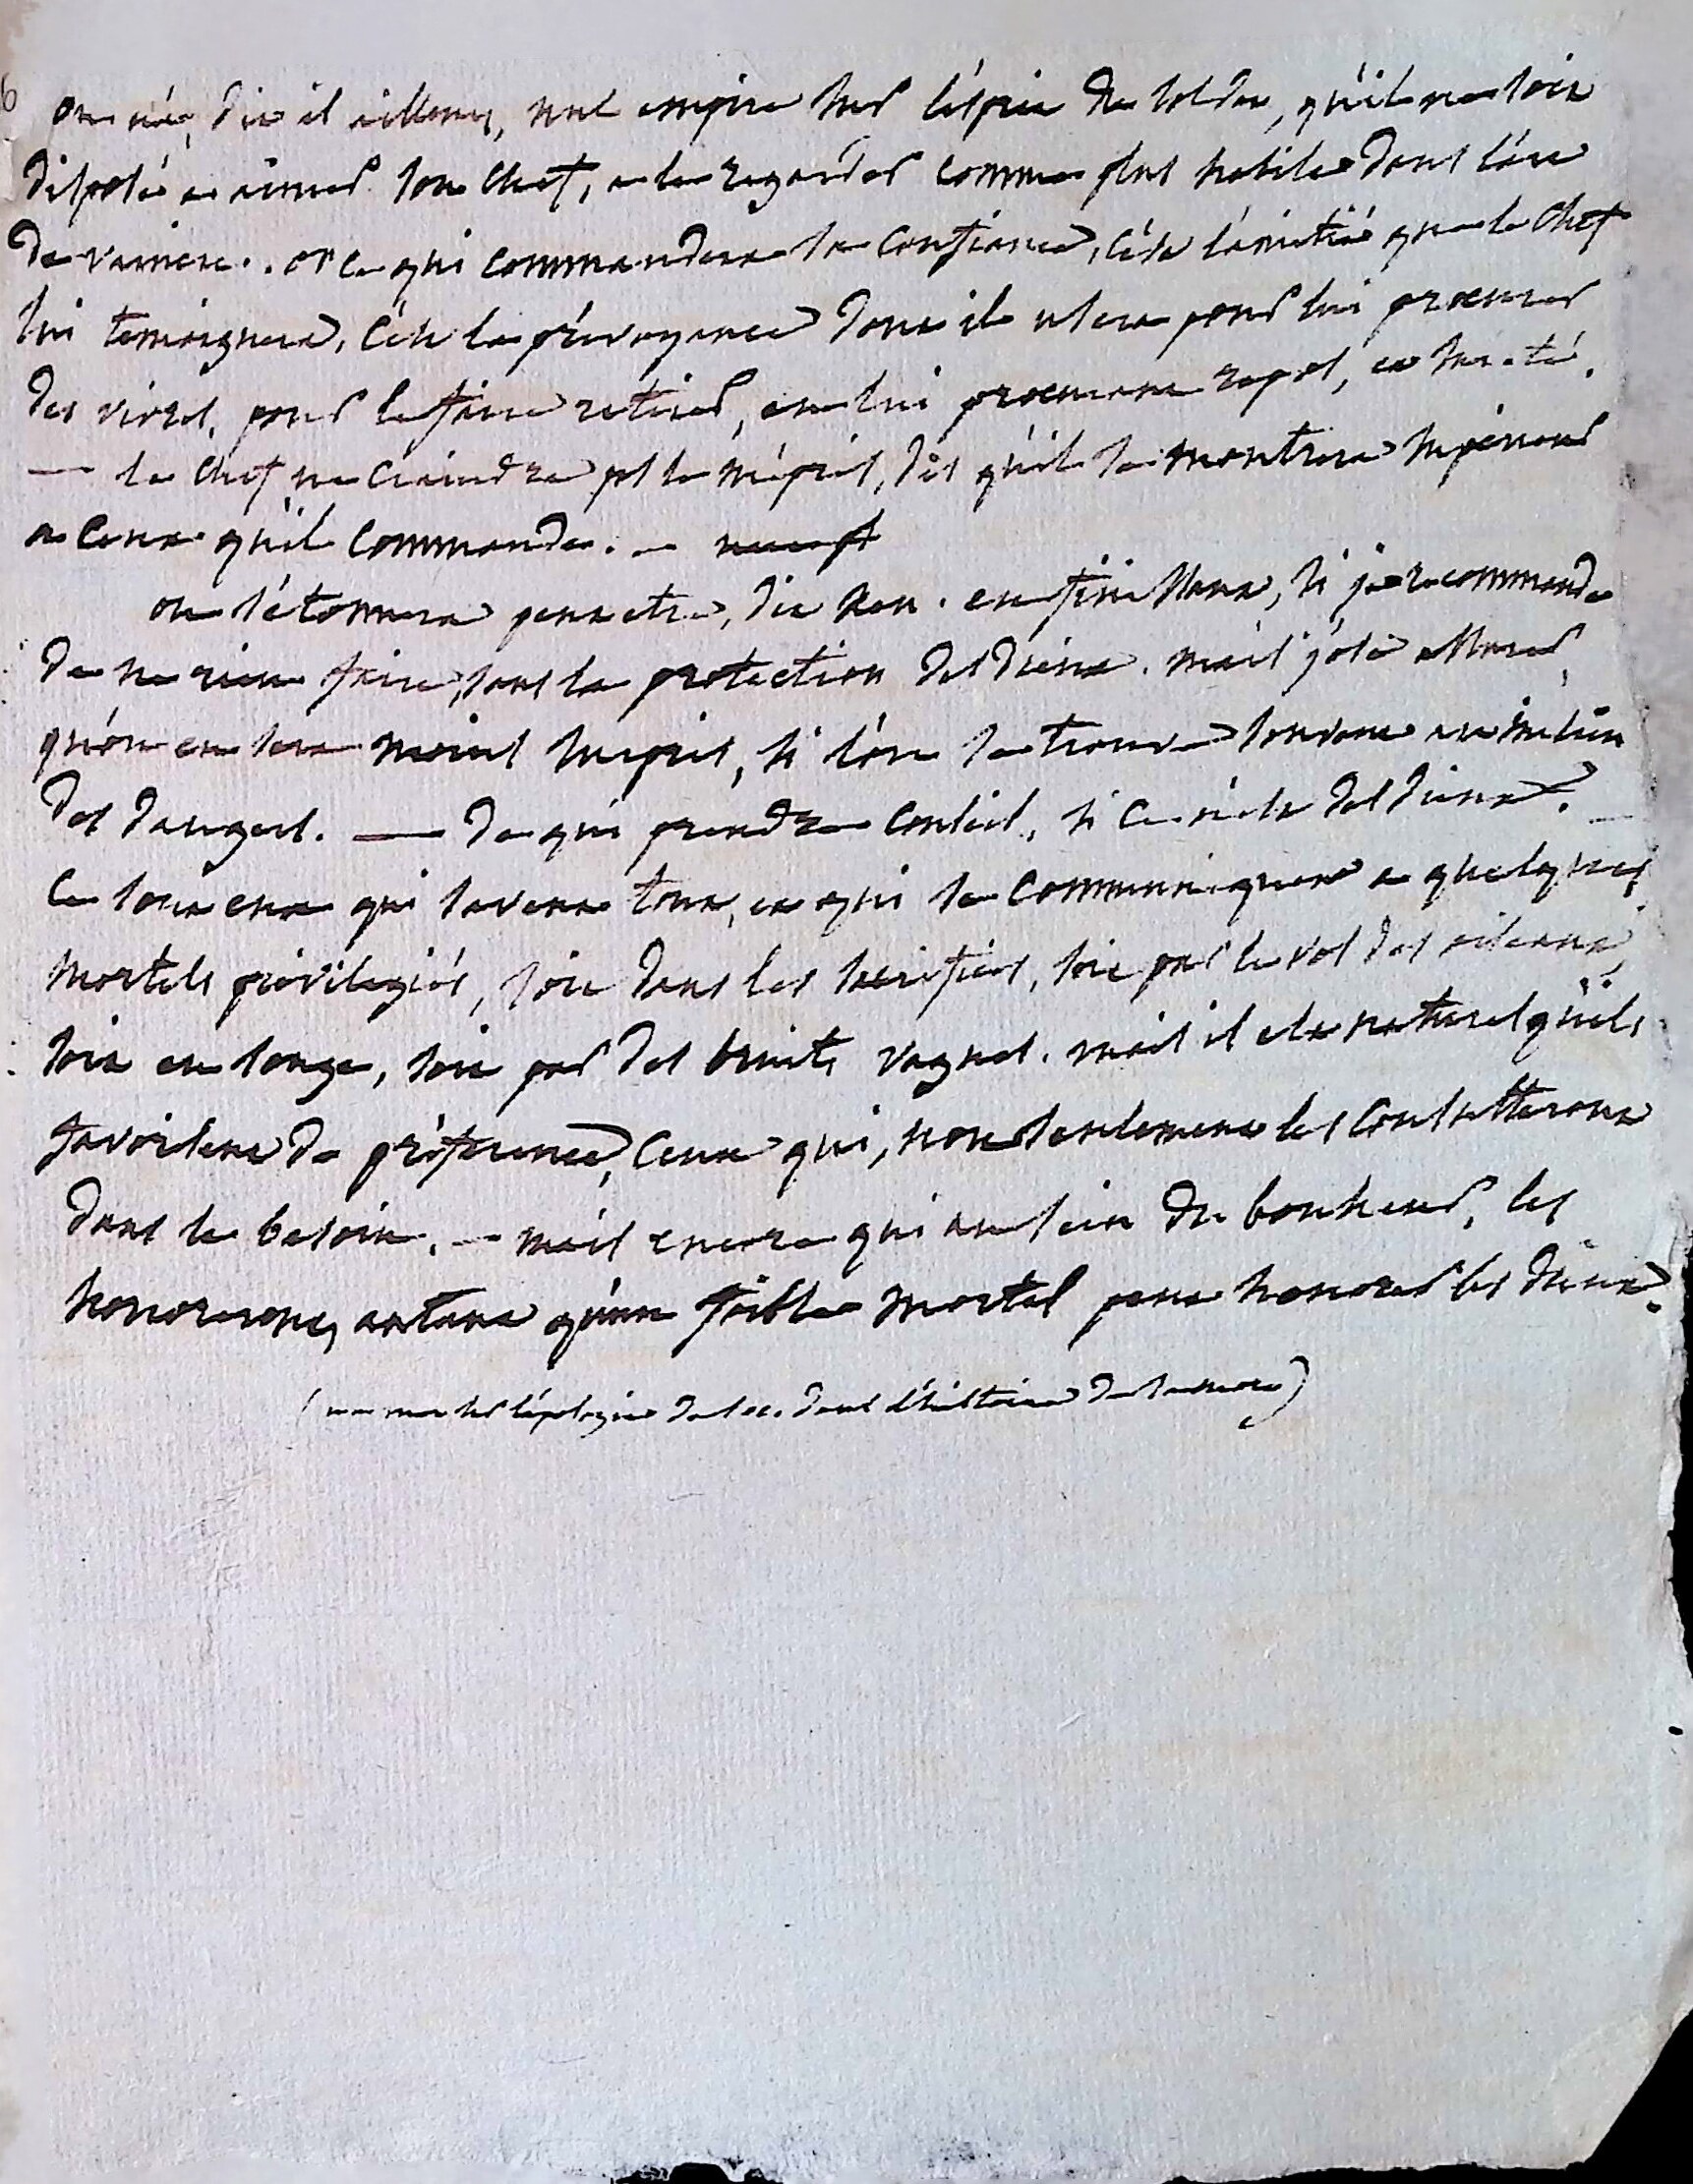 on n'a, dit il ailleurs, nul empire sur l'esprit du soldat, qu'il ne soit
disposé a aimer son chef, a le regarder comme plus habile dans l'art
de vaincre.. or ce qui commandera sa confiance, c'est l'amitié que le chef
lui temoignera, c'est la prévoyance dont il usera pour lui procurer
des vivres, pour le faire retirer, en lui procurant repos, et sureté.
— le chef ne craindra pas le mépris, dès qu'il se montrera supérieur
a ceux qu'il commande. —
on s'étonnera peut etre, dit Xen. en finissant, si je recommande
de ne rien faire, sans la protection des dieux. mais j'ose assurer,
qu'on en sera moins surpris, si l'on se trouve souvent au milieu
des dangers. — de qui prendre conseil, si ce n'est des dieux? —
ce sont eux qui savent tout, et qui se communiquent a quelques
mortels privilegiés, soit dans les sacrifices, soit par le vol des oiseaux,
soit en songe, soit par des bruits vagues. mais il est naturel qu'ils
favorisent de préférence, ceux qui, non seulement les consulteront
dans le besoin, — mais encore qui au sein du bonheur, les
honoreront, autant qu'un foible mortel peut honorer les dieux.
l'apologie de Soc. dans l'histoire